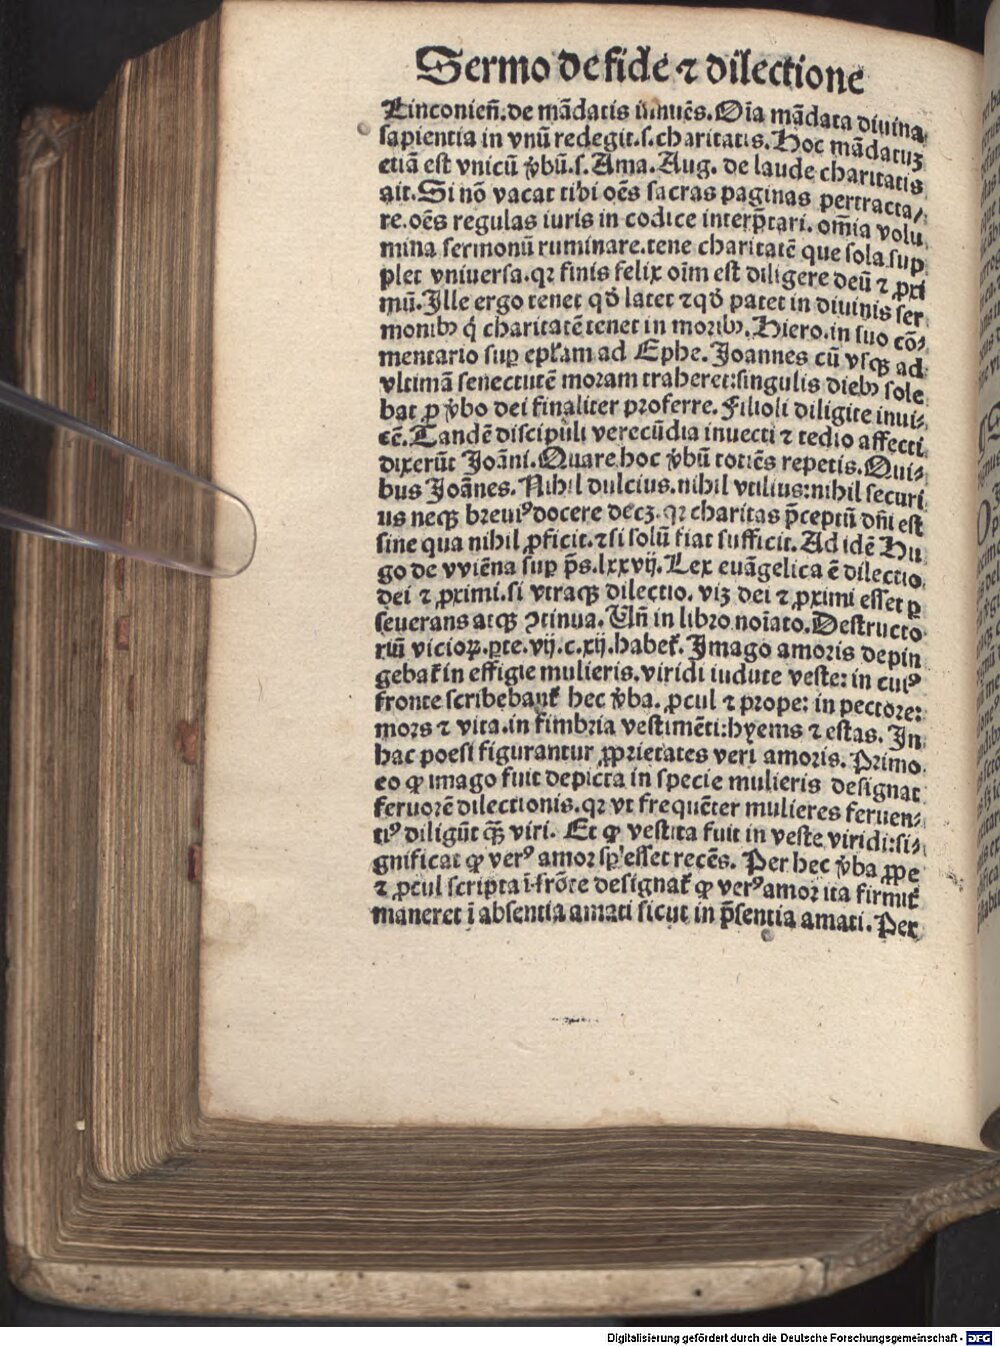 Sermo de fide ⁊ dilectione
Linconieñ. de mãdatis inuẽs. Oĩa mãdata diuina
sapientia in vnũ redegit .s. charitatis. Hoc mãdatuꝫ
etiã est vnicũ v̾bũ .s. Ama. Aug. de laude charitatis
ait. Si nõ vacat tibi oẽs sacras paginas pertracta/
re. oẽs regulas iuris in codice interp̃tari. om̃ia volu
mina sermonũ ruminare. tene charitatẽ que sola sup
plet vniuersa. qꝛ finis felix oĩm est diligere deũ ⁊ ꝓxi
mũ. Ille ergo tenet qď latet ⁊ qď patet in diuinis ser
monibꝰ q́ charitatẽ tenet in moribꝰ. Hiero. in suo cõ-
mentario suꝑ ep̃lam ad Ephe. Joannes cũ vsqꝫ ad
vltimã senectutẽ moram traheret: singulis diebꝰ sole
bat ꝑ v̾bo dei finaliter proferre. Filioli diligite inui-
cẽ. Tandẽ discipuli verecũdia inuecti ⁊ tedio affecti
dixerũt Joãni. Quare hoc v̾bũ totiẽs repetis. Qui-
bus Joãnes. Nihil dulcius. nihil vtilius: nihil securi
us neqꝫ breuiꝰ docere decꝫ. qꝛ charitas p̃ceptũ dñi est
sine qua nihil ꝓficit. ⁊ si solũ fiat sufficit. Ad idẽ Hu
go de vviẽna suꝑ p̃s. lxxvij. Lex euãgelica ẽ dilectio
dei ⁊ ꝓximi. si vtraqꝫ dilectio. viꝫ dei ⁊ ꝓximi esset ꝑ
seuerans atqꝫ ꝯtinua. Vñ in libro noĩato. Destructo
riũ vicioꝝ. ꝑte. vij. c. xij. habet̃. Imago amoris depin
gebat̃ in effigie mulieris. viridi indute veste: in cuiꝰ
fronte scribebant̃ hec v̾ba. ꝓcul ⁊ prope: in pectore:
mors ⁊ vita. in fimbria vestimẽti: hyems ⁊ estas. In
hac poesi figurantur ꝓprietates veri amoris. Primo
eo ꝙ imago fuit depicta in specie mulieris designat
feruorẽ dilectionis. qꝛ vt frequẽter mulieres feruen-
tiꝰ diligũt qꝫ̃ viri. Et ꝙ vestita fuit in veste viridi: si-
gnificat ꝙ verꝰ amor sp̃ esset recẽs. Per hec v̾ba ꝓpe
⁊ ꝓcul scripta ĩ frõte designat̃ ꝙ verꝰ amor ita firmit̃
maneret ĩ absentia amati sicut in p̃sentia amati. Per
Digitalisierung gefördert durch die Deutsche Forschungsgemeinschaft - DFG